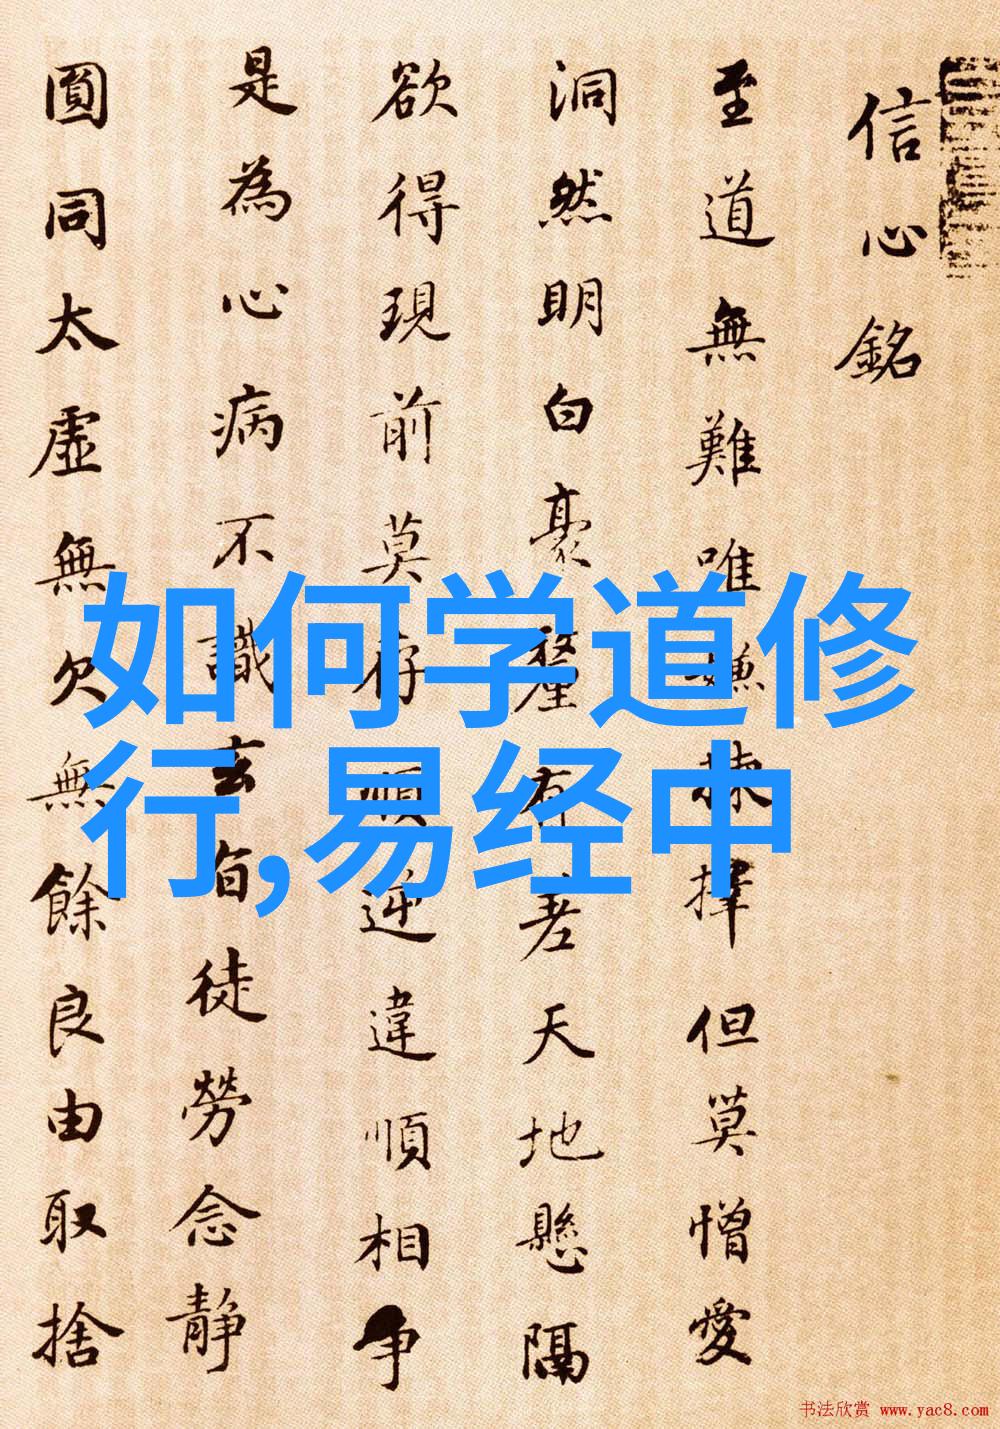 信心銘
至道無難唯嫌揀擇但莫憎愛
洞然明白豪釐有差天地懸隔
欲得現前莫存順逆違順相争
是為心病不識玄旨徒勞念静
圓同太虚無欠無餘良由取捨
如何学道修
行,易经中
书法欣赏 www.yac8.com